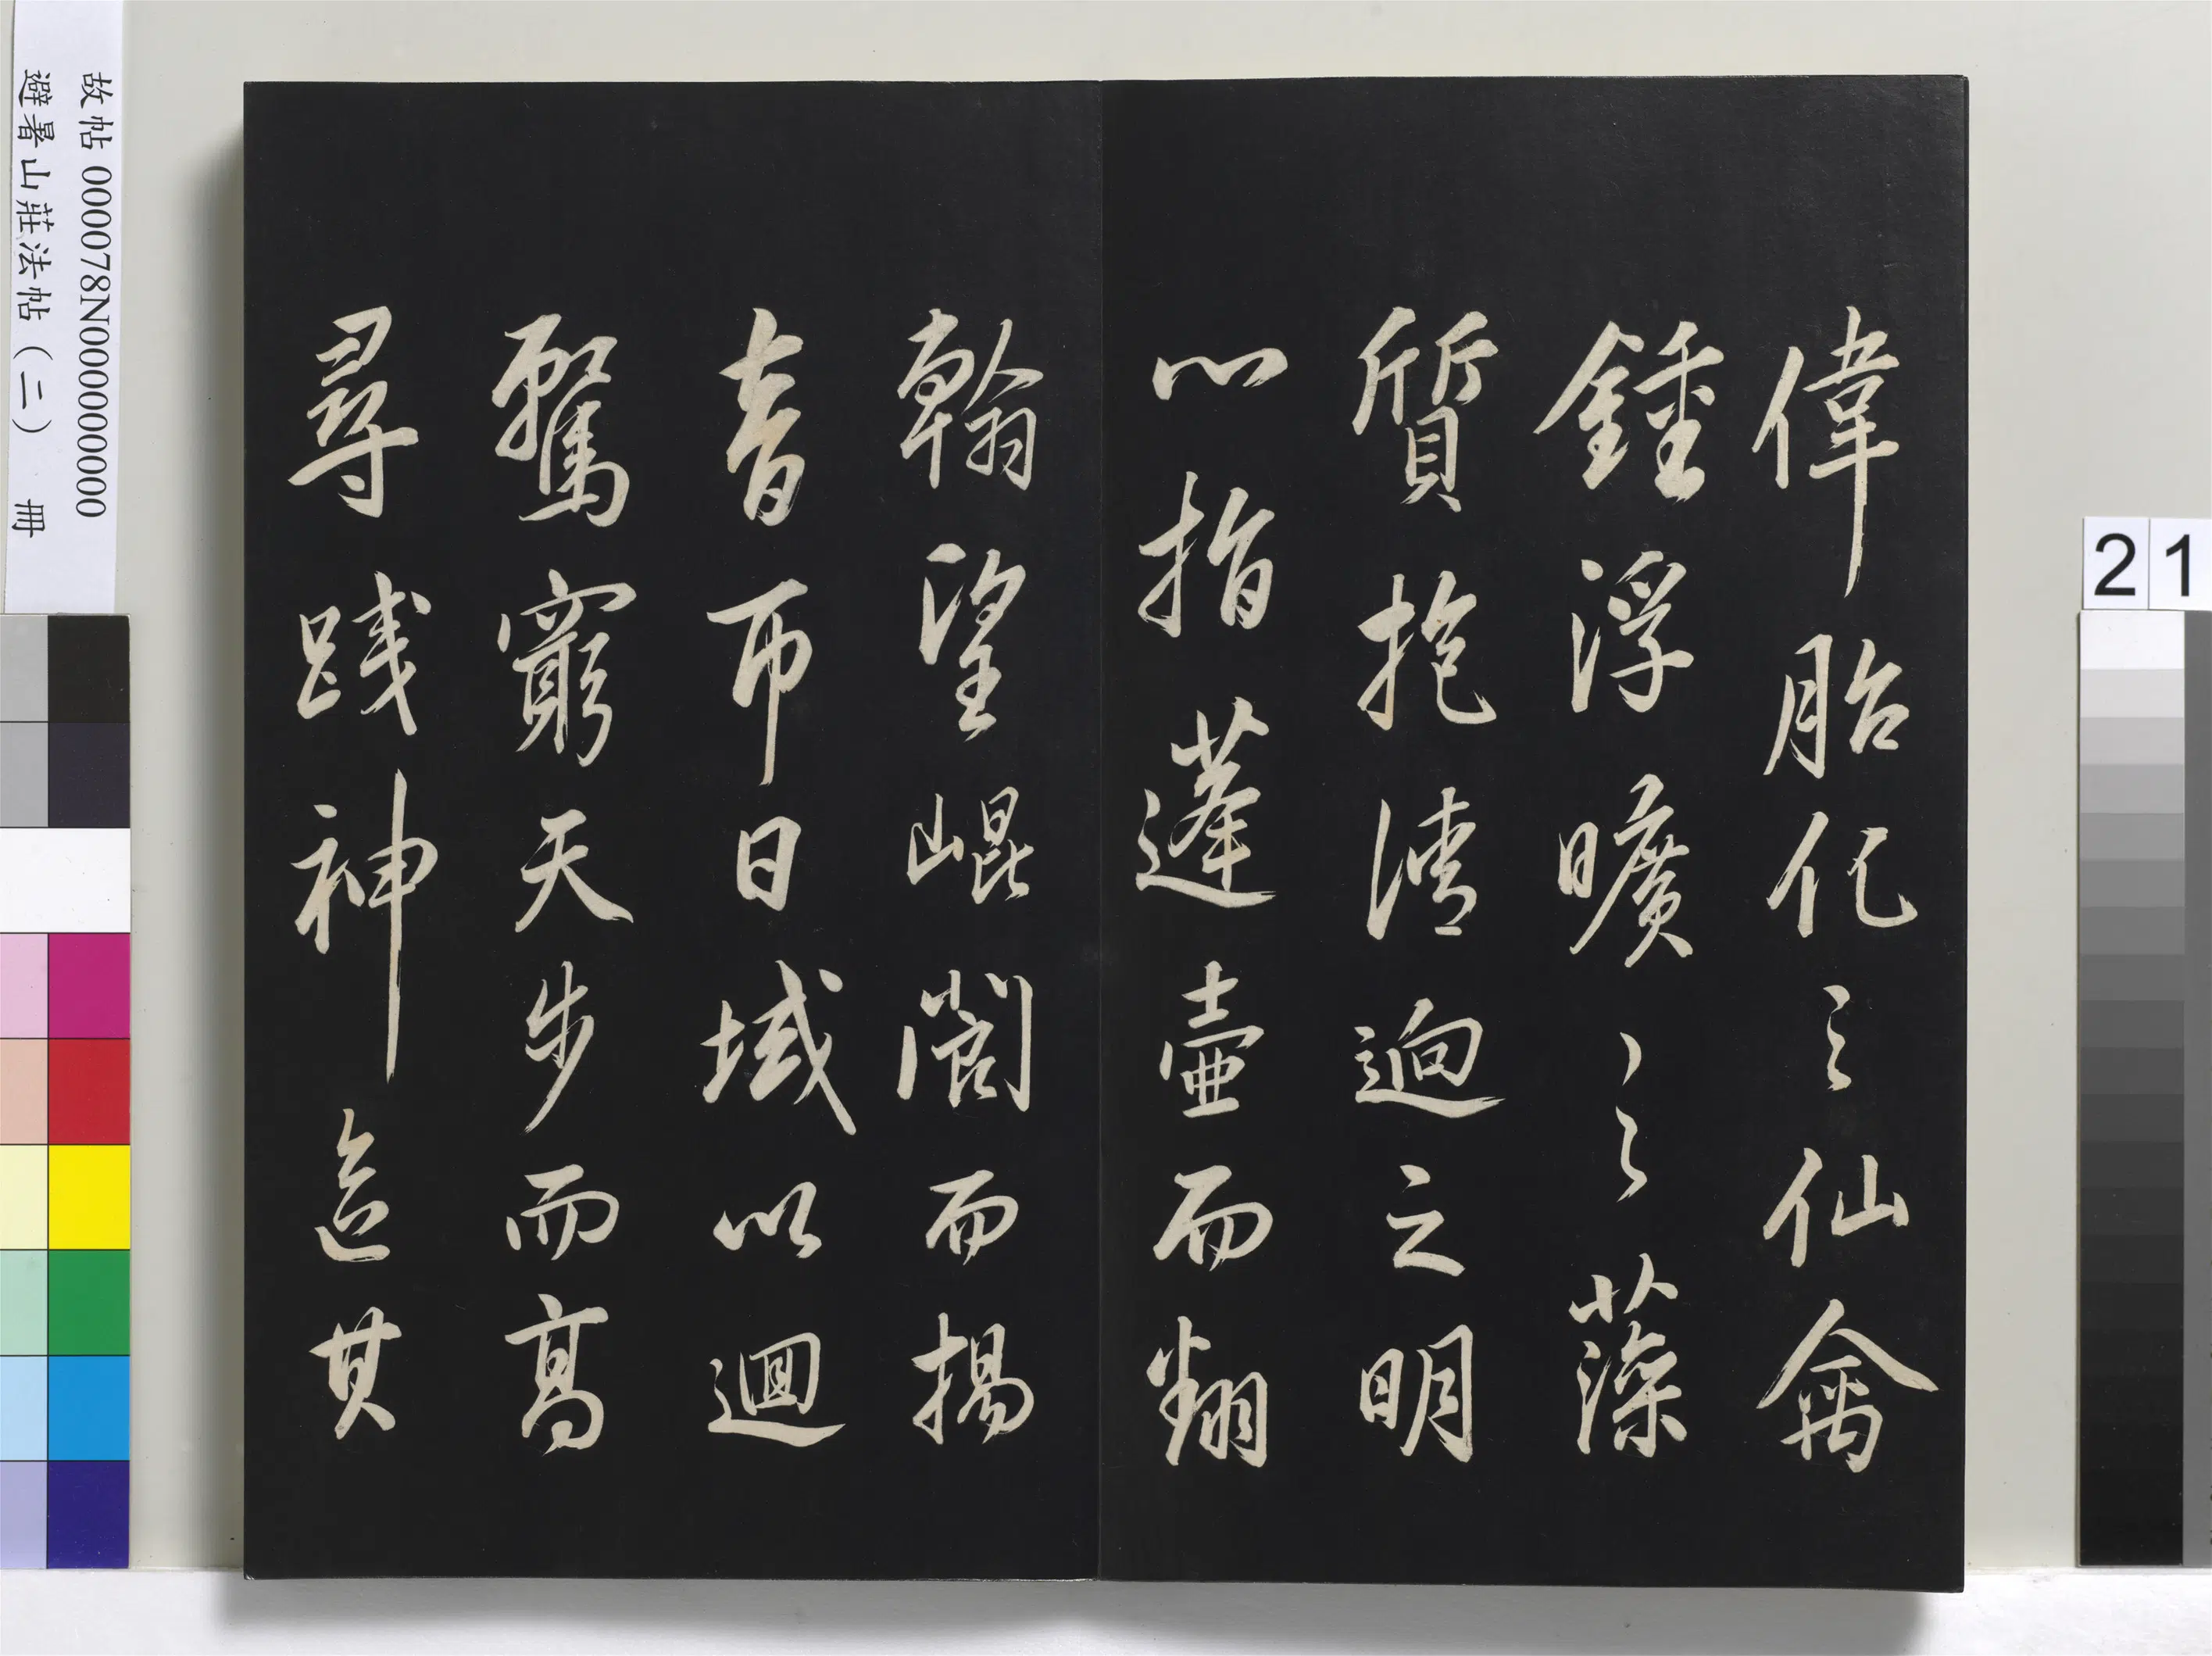 故帖 000078N000000000
避暑山莊法帖（二） 冊
偉胎化之仙禽
鍾浮曠之藻
質抱清迥之明
心指蓬壺而翻
翰望崐閬而揚
音帀日域以迴
騖窮天步而高
尋踐神區其
21